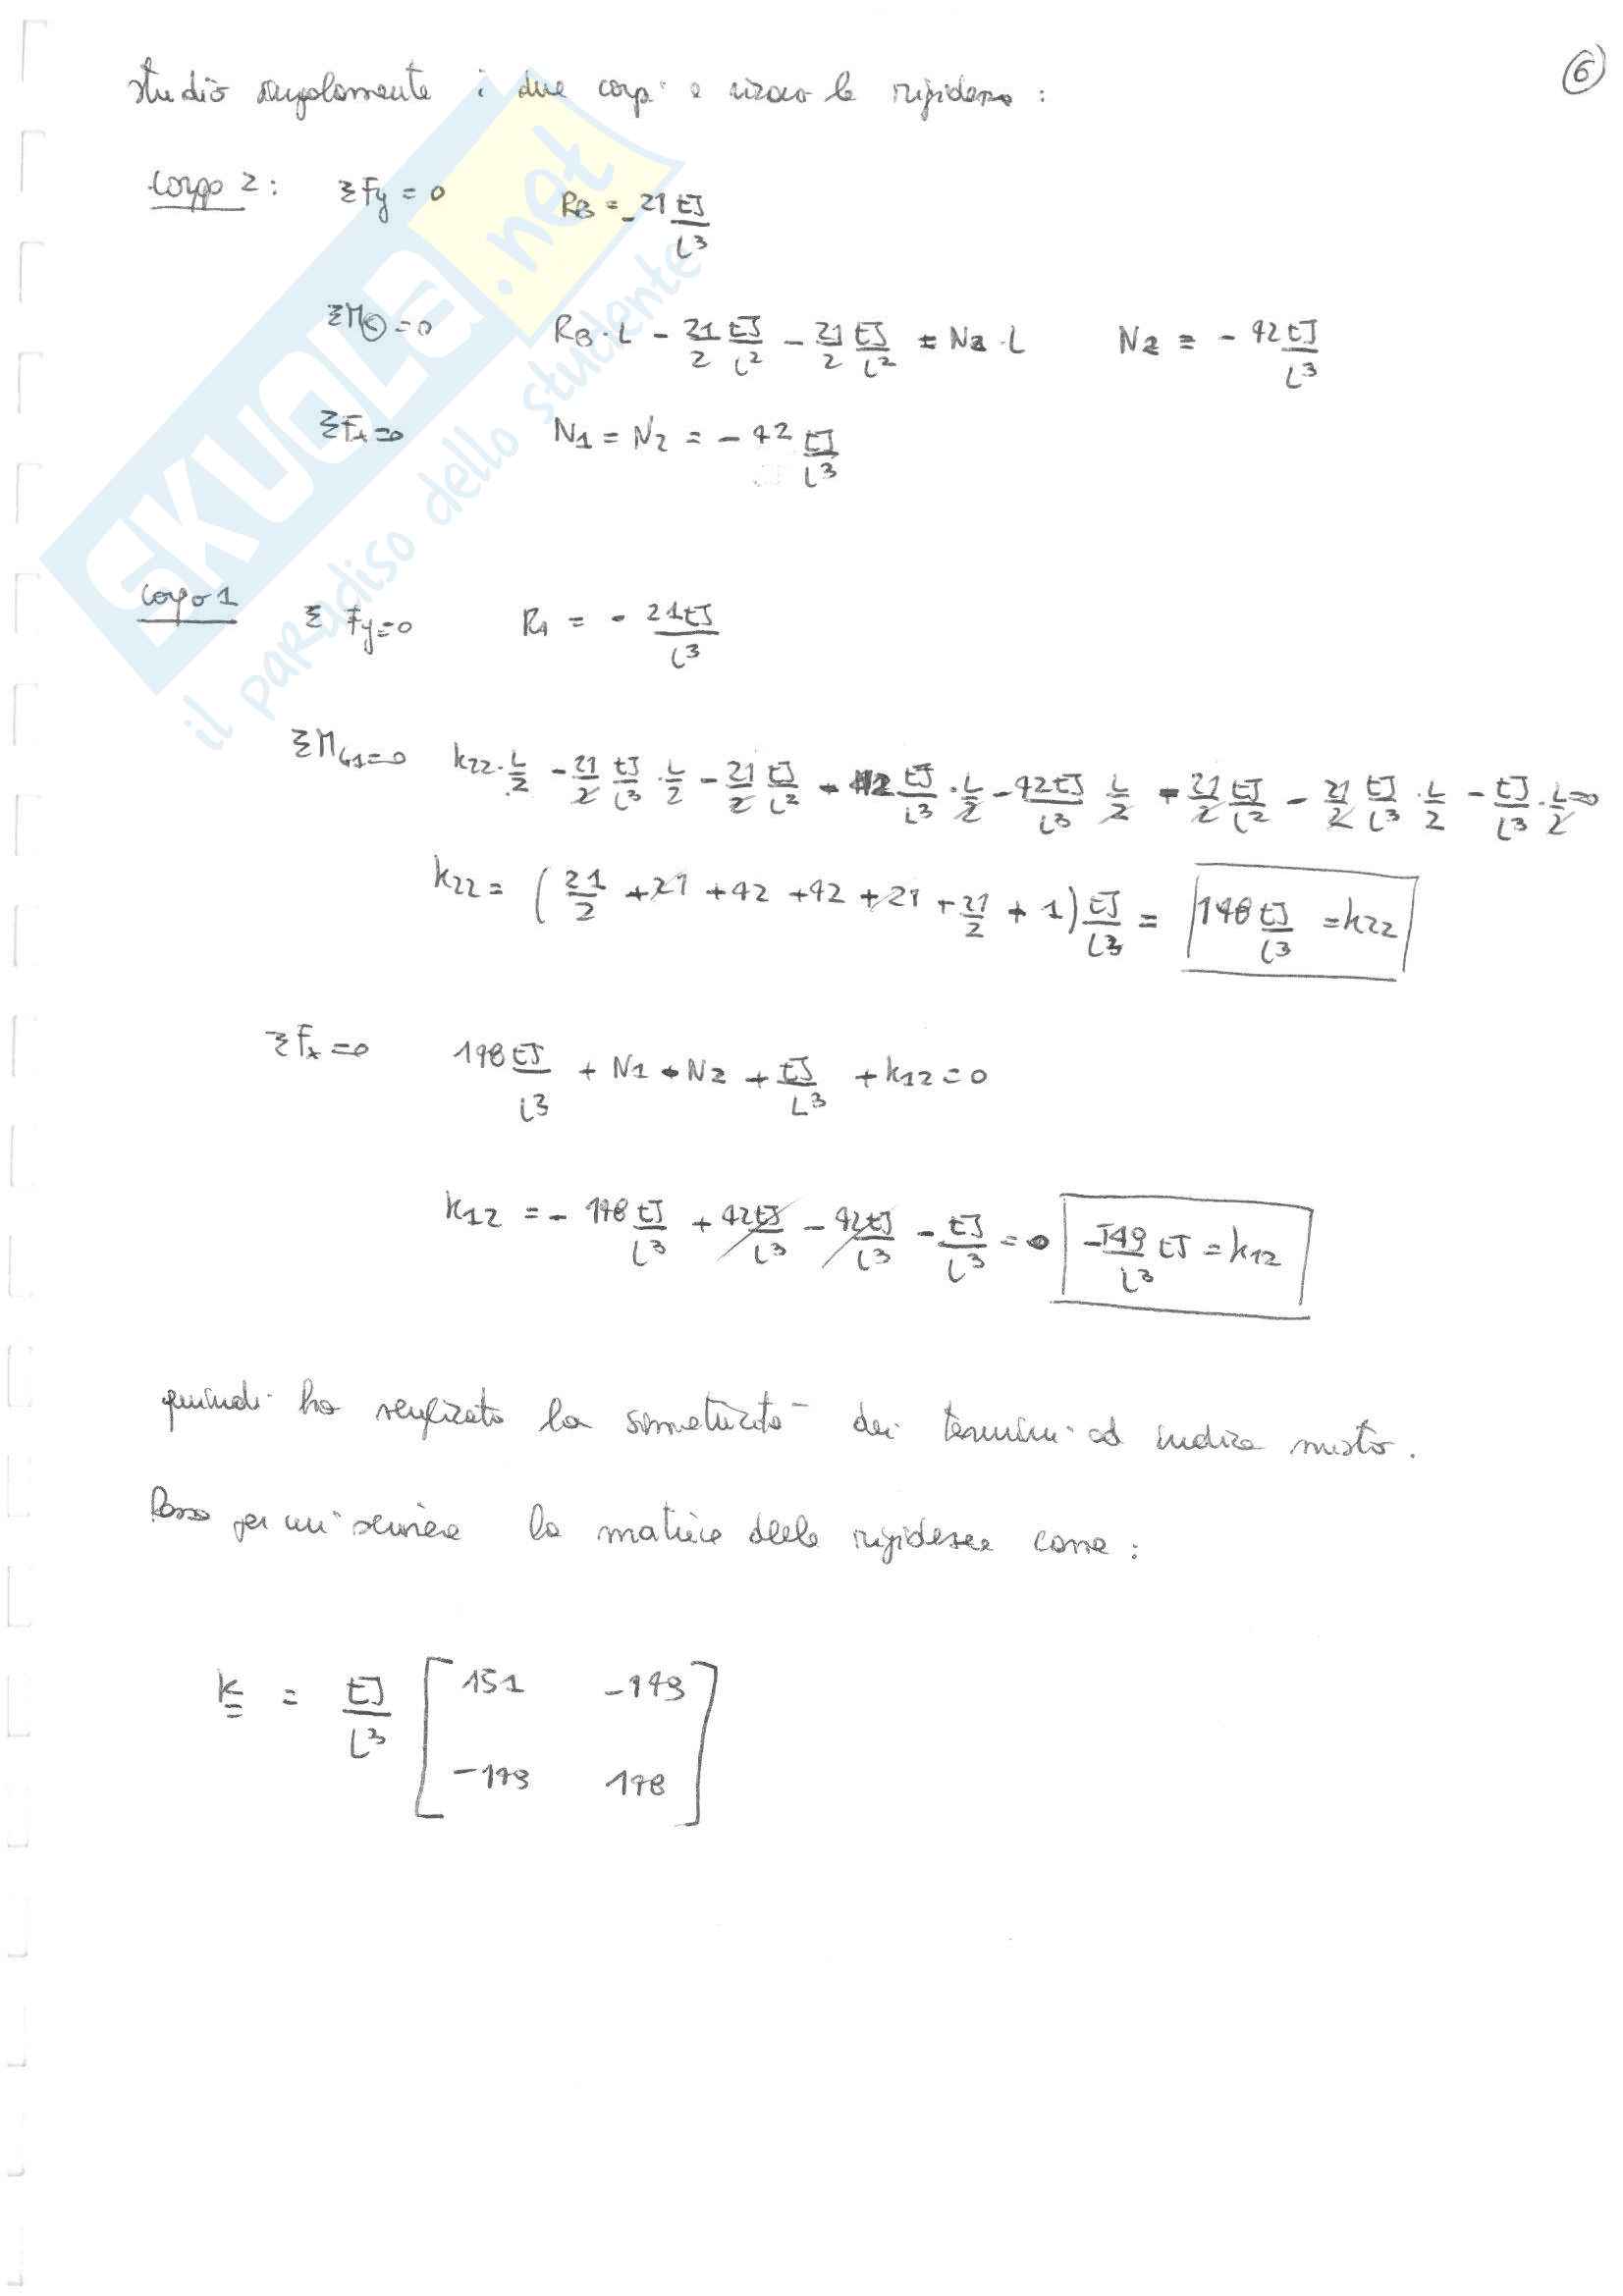 studio singolarmente i due corpi e ricavo le rigidezze :
6
Corpo 2 : ΣFy = 0 RB = -21 EJ/L³
ΣM©=0 RB·L - 21/2 EJ/L² - 21/2 EJ/L² = N2·L N2 = -42 EJ/L³
ΣFx=0 N1 = N2 = -42 EJ/L³
Corpo 1 Σ Fy=0 R1 = - 21EJ/L³
ΣMG1=0 k22·L/2 - 21/2 EJ/L³·L/2 - 21/2 EJ/L² - 42 EJ/L³·L/2 - 42EJ/L³ L/2 - 21/2 EJ/L² - 21/2 EJ/L³·L/2 - EJ/L³·L/2=0
k22 = (21/2 + 21 + 42 + 42 + 21 + 21/2 + 1) EJ/L³ = 148 EJ/L³ = k22
ΣFx=0 148 EJ/L³ + N1 - N2 + EJ/L³ + k12 = 0
k12 = - 148 EJ/L³ + 42EJ/L³ - 42EJ/L³ - EJ/L³ = -149/L³ EJ = k12
quindi ho verificato la simmetricità dei termini ad indice misto.
Posso per cui scrivere la matrice delle rigidezze come :
K = EJ/L³ [ 151 -149
-149 148 ]
SKUOLA.net
il paradiso dello studente